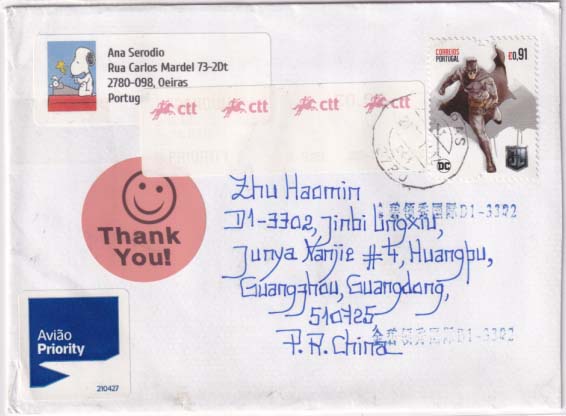 Ana Serodio
Rua Carlos Mardel 73-2Dt
2780-098, Oeiras
Portug
ctt ctt ctt ctt
CORREIOS
PORTUGAL
€0,91
DC
Thank
You!
Zhu Haomin
D1-3302, Jinbi Lingxiu,
金碧领秀国际D1-3302
Junya Nanjie #4, Huangpu,
Guangzhou, Guangdong,
510725
P.R. China
金碧领秀国际D1-3302
Avião
Priority
210427